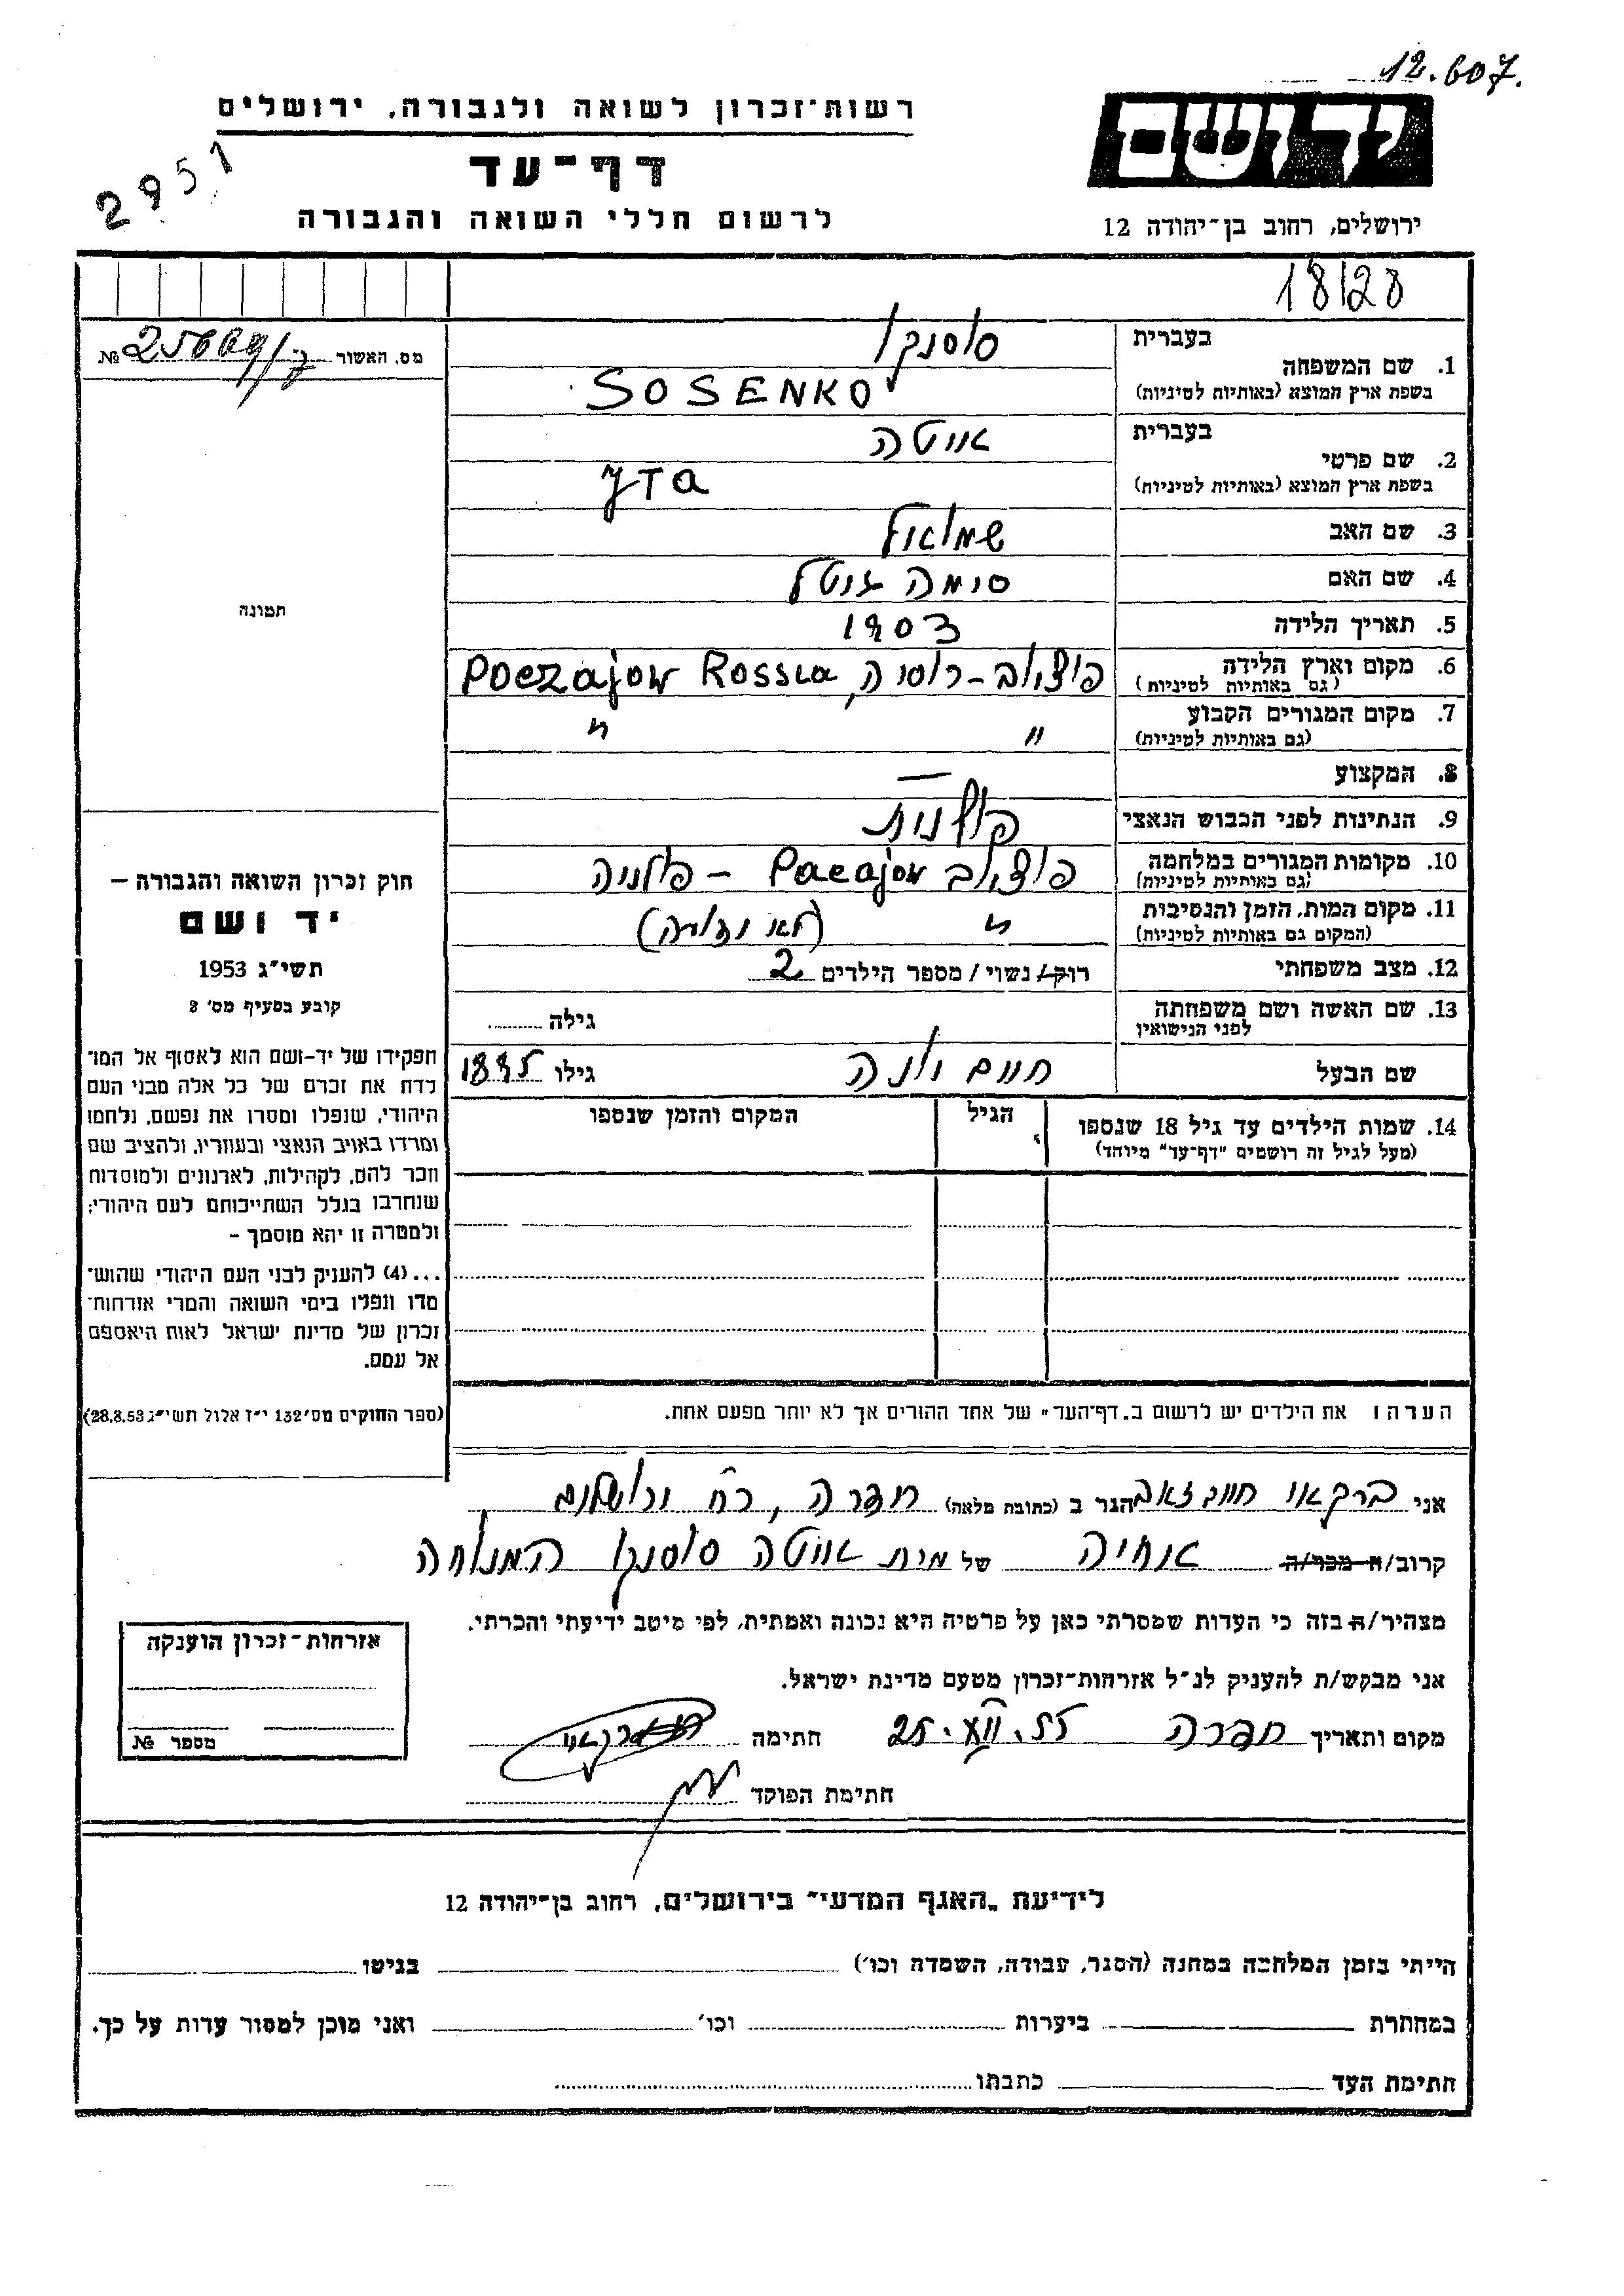 12.607.
רשות־זכרון לשואה ולגבורה, ירושלים
יד ושם
דף־עד
2951
לרשום חללי השואה והגבורה
ירושלים, רחוב בן־יהודה 12
18128
מס. האשור № 25669/7
בעברית סוסנקו
1. שם המשפחה
בשפת ארץ המוצא (באותיות לטיניות) SOSENKO
בעברית איטה
2. שם פרטי
בשפת ארץ המוצא (באותיות לטיניות) YTA
3. שם האב שמואל
4. שם האם סימה גיטל
תמונה
5. תאריך הלידה 1903
6. מקום וארץ הלידה
(גם באותיות לטיניות) Poczajow Rossia,
7. מקום המגורים הקבוע " "
(גם באותיות לטיניות)
8. המקצוע —
9. הנתינות לפני הכבוש הנאצי פולנית
10. מקומות המגורים במלחמה Pocajow – פולניה
(גם באותיות לטיניות)
11. מקום המות, הזמן והנסיבות " (לא ידוע)
(המקום גם באותיות לטיניות)
12. מצב משפחתי רוק/ נשוי / מספר הילדים 2
13. שם האשה ושם משפחתה גילה
לפני הנישואין
שם הבעל חיים יונה גילו 1895
14. שמות הילדים עד גיל 18 שנספו הגיל המקום והזמן שנספו
(מעל לגיל זה רושמים "דף־עד" מיוחד)
הערה: את הילדים יש לרשום ב„דף־העד" של אחד ההורים אך לא יותר מפעם אחת.
חוק זכרון השואה והגבורה –
יד ושם
תשי"ג 1953
קובע בסעיף מס' 2
תפקידו של יד-ושם הוא לאסוף אל המו־
לדת את זכרם של כל אלה מבני העם
היהודי, שנפלו ומסרו את נפשם, נלחמו
ומרדו באויב הנאצי ובעוזריו, ולהציב שם
וזכר להם, לקהילות, לארגונים ולמוסדות
שנחרבו בגלל השתייכותם לעם היהודי;
ולמטרה זו יהא מוסמך –
...(4) להעניק לבני העם היהודי שהוש־
מדו ונפלו בימי השואה והמרי אזרחות־
זכרון של מדינת ישראל לאות היאספם
אל עמם.
(ספר החוקים מס' 132 י"ז אלול תשי"ג 28.8.53)
אני ברקאי הגר ב (כתובת מלאה) חדרה, רח' ירושלים
קרוב/ה מכר/ה של מית איטה סוסנקו המנוחה
מצהיר/ה בזה כי העדות שמסרתי כאן על פרטיה היא נכונה ואמתית, לפי מיטב ידיעתי והכרתי.
אני מבקש/ת להעניק לנ"ל אזרחות־זכרון מטעם מדינת ישראל.
מקום ותאריך חדרה 25. .55 חתימה
חתימת הפוקד
אזרחות־זכרון הוענקה
מספר №
לידיעת „האגף המדעי" בירושלים, רחוב בן־יהודה 12
הייתי בזמן המלחמה במחנה (הסגר, עבודה, השמדה וכו') בגיטו
במחתרת ביערות וכו' ואני מוכן למסור עדות על כך.
חתימת העד כתבתו